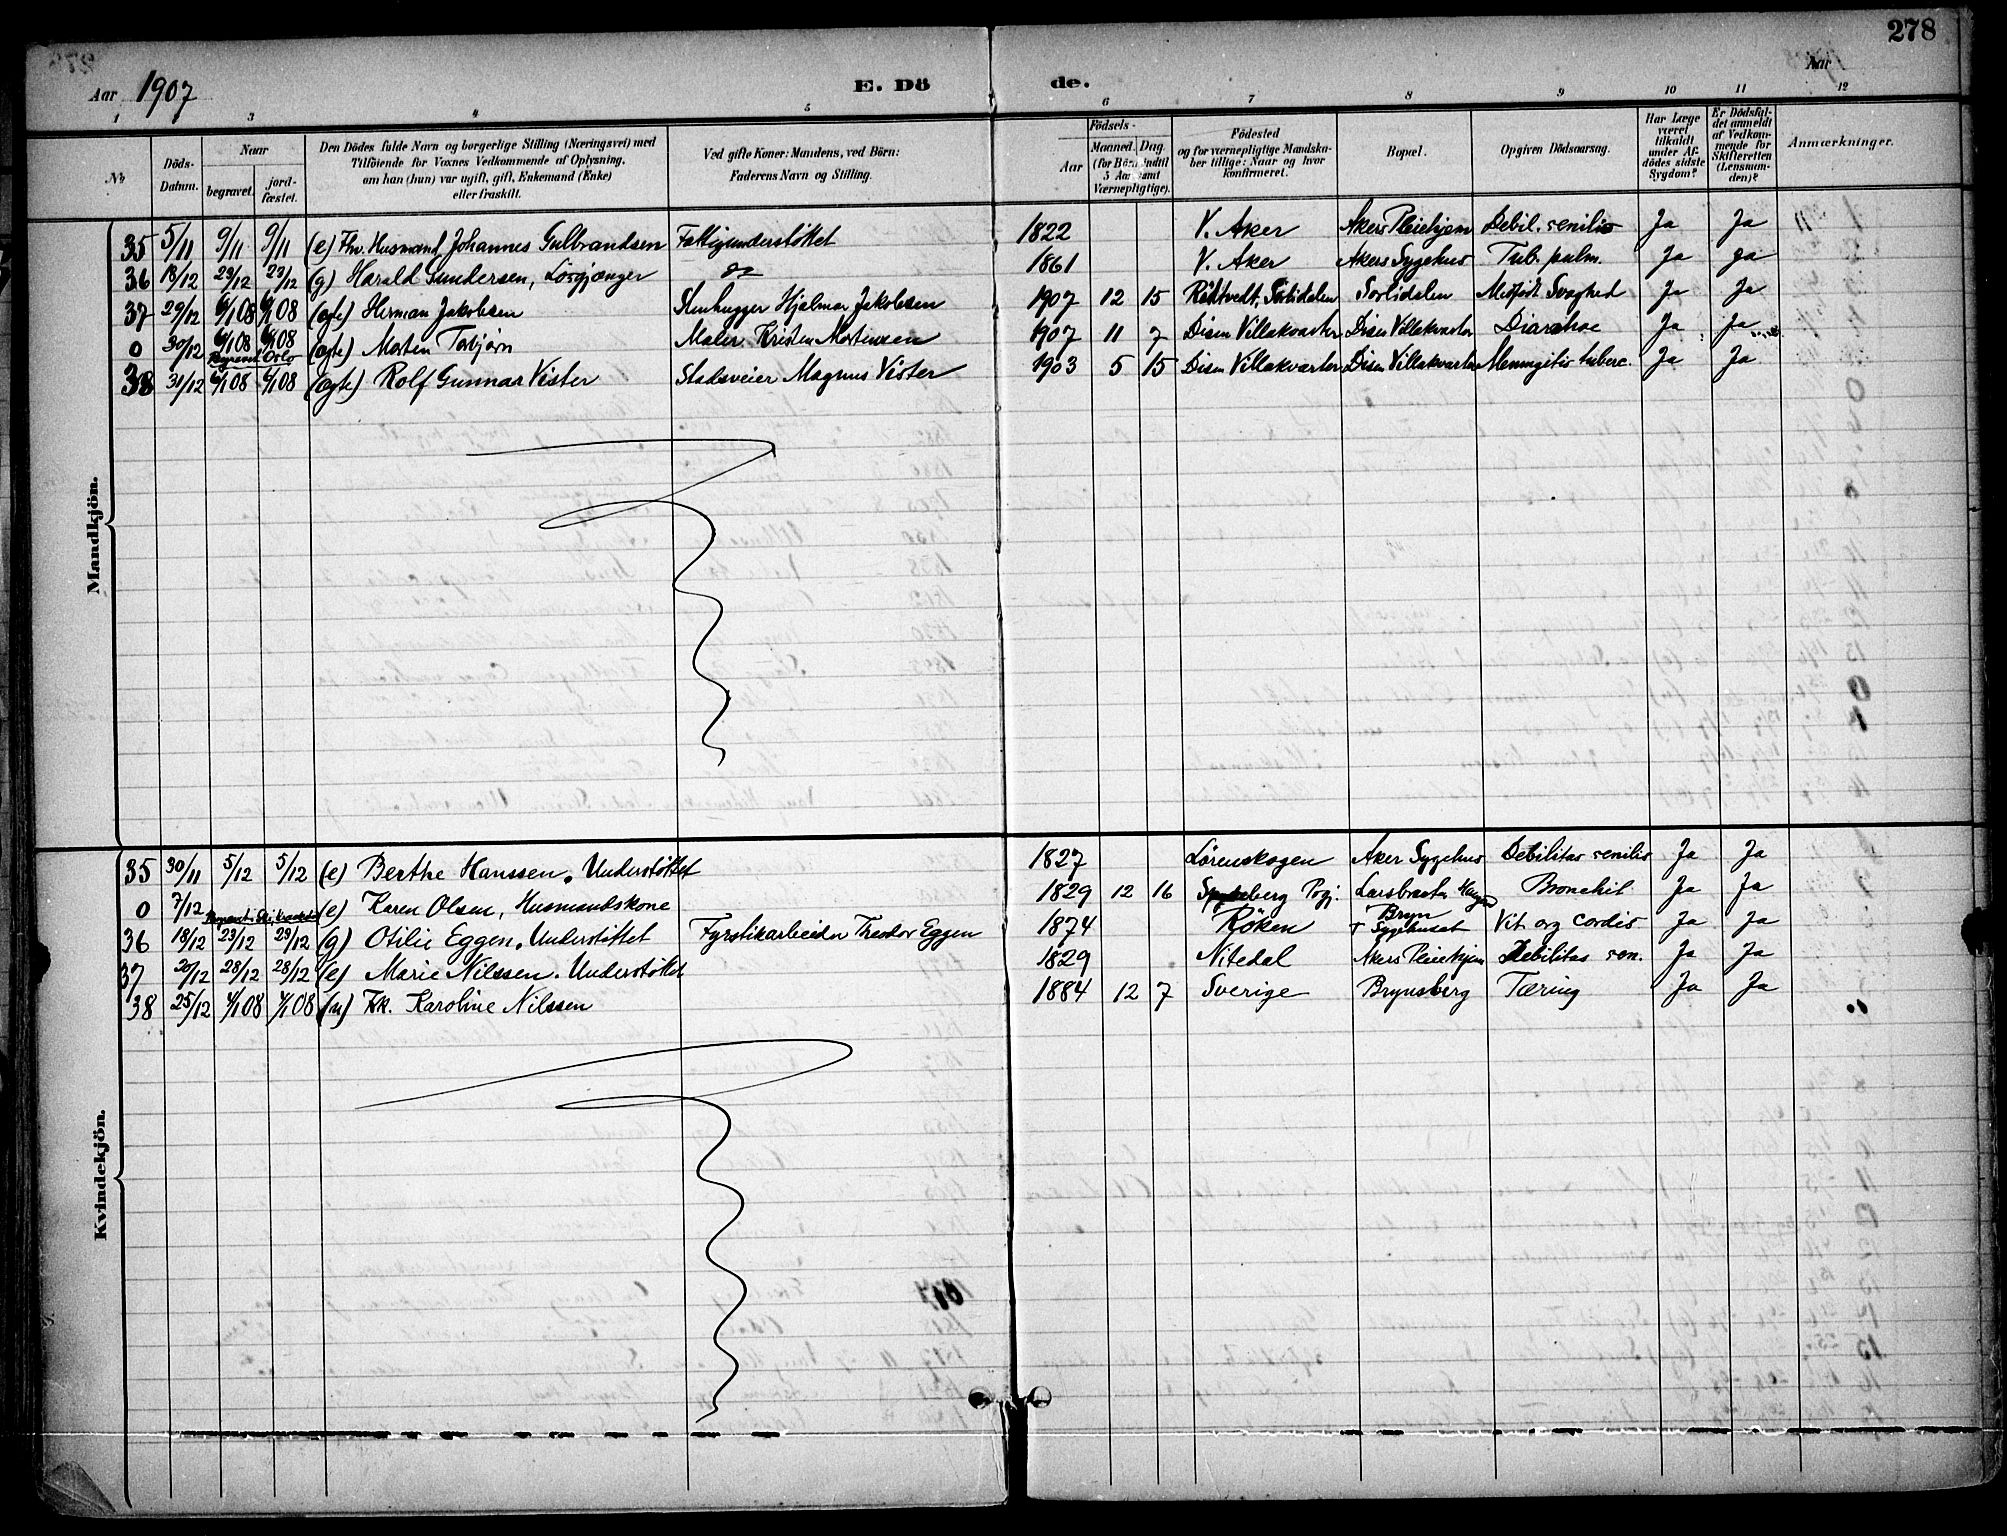 278
Aar 1907 E. Dö de. Aar
1 2 3 4 5 6 7 8 9 10 11 12
No
Döds-Datum.
Naar
begravet. jord-fæstet.
Den Dödes fulde Navn og borgerlige Stilling (Næringsvei) med
Tilföiende for Voxnes Vedkommende af Oplysning,
om han (hun) var ugift, gift, Enkemand (Enke)
eller fraskilt.
Ved gifte Koner: Mandens, ved Börn:
Faderens Navn og Stilling.
Födsels-
Aar
Maaned. Dag.
(for Börn indtil
5 Aar samt
Værnepligtige).
Födested
og for værnepligtige Mandska-
ber tillige: Naar og hvor
konfirmeret.
Bopæl.
Opgiven Dödsaarsag.
Har Læge
været
tilkaldt
under Af-
dödes sidste
Sygdom?
Er Dödsfal-
det anmeldt
af Vedkom-
mende for
Skifteretten
(Lensman-
den)?
Anmærkninger.
Mandkjön.
35 5/11 9/11 9/11 (e) Fhv. Husmand Johannes Gulbrandsen Fattigunderstøttet 1822 V. Aker Akers Pleiehjem Debil. senilis Ja Ja
36 18/12 23/12 23/12 (g) Harald Gundersen, Løsgjænger do 1861 V. Aker Akers Sygehus Tub. pulm. Ja Ja
37 29/12 6/1 08 6/1 08 (ægte) Herman Jakobsen Stenhugger Hjalmar Jakobsen 1907 12 15 Rødtvedt, Sørlidalen Sørlidalen Medfødt Svaghed Ja Ja
0 30/12 6/1 08 6/1 08 (ægte) Morten Torbjørn Maler Kristen Mortensen 1907 11 7 Disen Villakvarter Disen Villakvarter Diarrhoe Ja Ja
Oslo
38 31/12 6/1 08 6/1 08 (ægte) Rolf Gunnar Vister Stadsveier Magnus Vister 1903 5 15 Disen Villakvarter Disen Villakvarter Meningitis tuberc. Ja Ja
Kvindekjön.
35 30/11 5/12 5/12 (e) Berthe Hanssen. Understøttet 1827 Lørenskogen Aker Sygehus Debilitas senilis Ja Ja
0 7/12 (e) Karen Olsen, Husmandskone 1829 12 16 Bronchit Ja Ja
Bryn
36 18/12 23/12 23/12 (g) Otilie Eggen. Understøttet Fyrstikarbeider Theodor Eggen 1874 Røken Sygehuset Vit. org cordis Ja Ja
37 20/12 28/12 28/12 (e) Marie Nilssen. Understøttet 1829 Nitedal Akers Pleiehjem Debilitas sen. Ja Ja
38 25/12 4/1 08 4/1 08 (u) Fbk. Karoline Nilssen 1884 12 7 Sverige Brynsberg Tæring Ja Ja